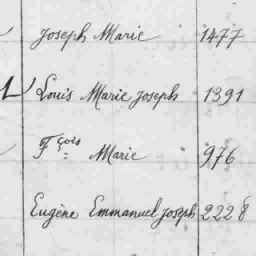 Joseph Marie 1477
Louis Marie Joseph 1391
Fçois Marie 976
Eugène Emmanuel Joseph 2228